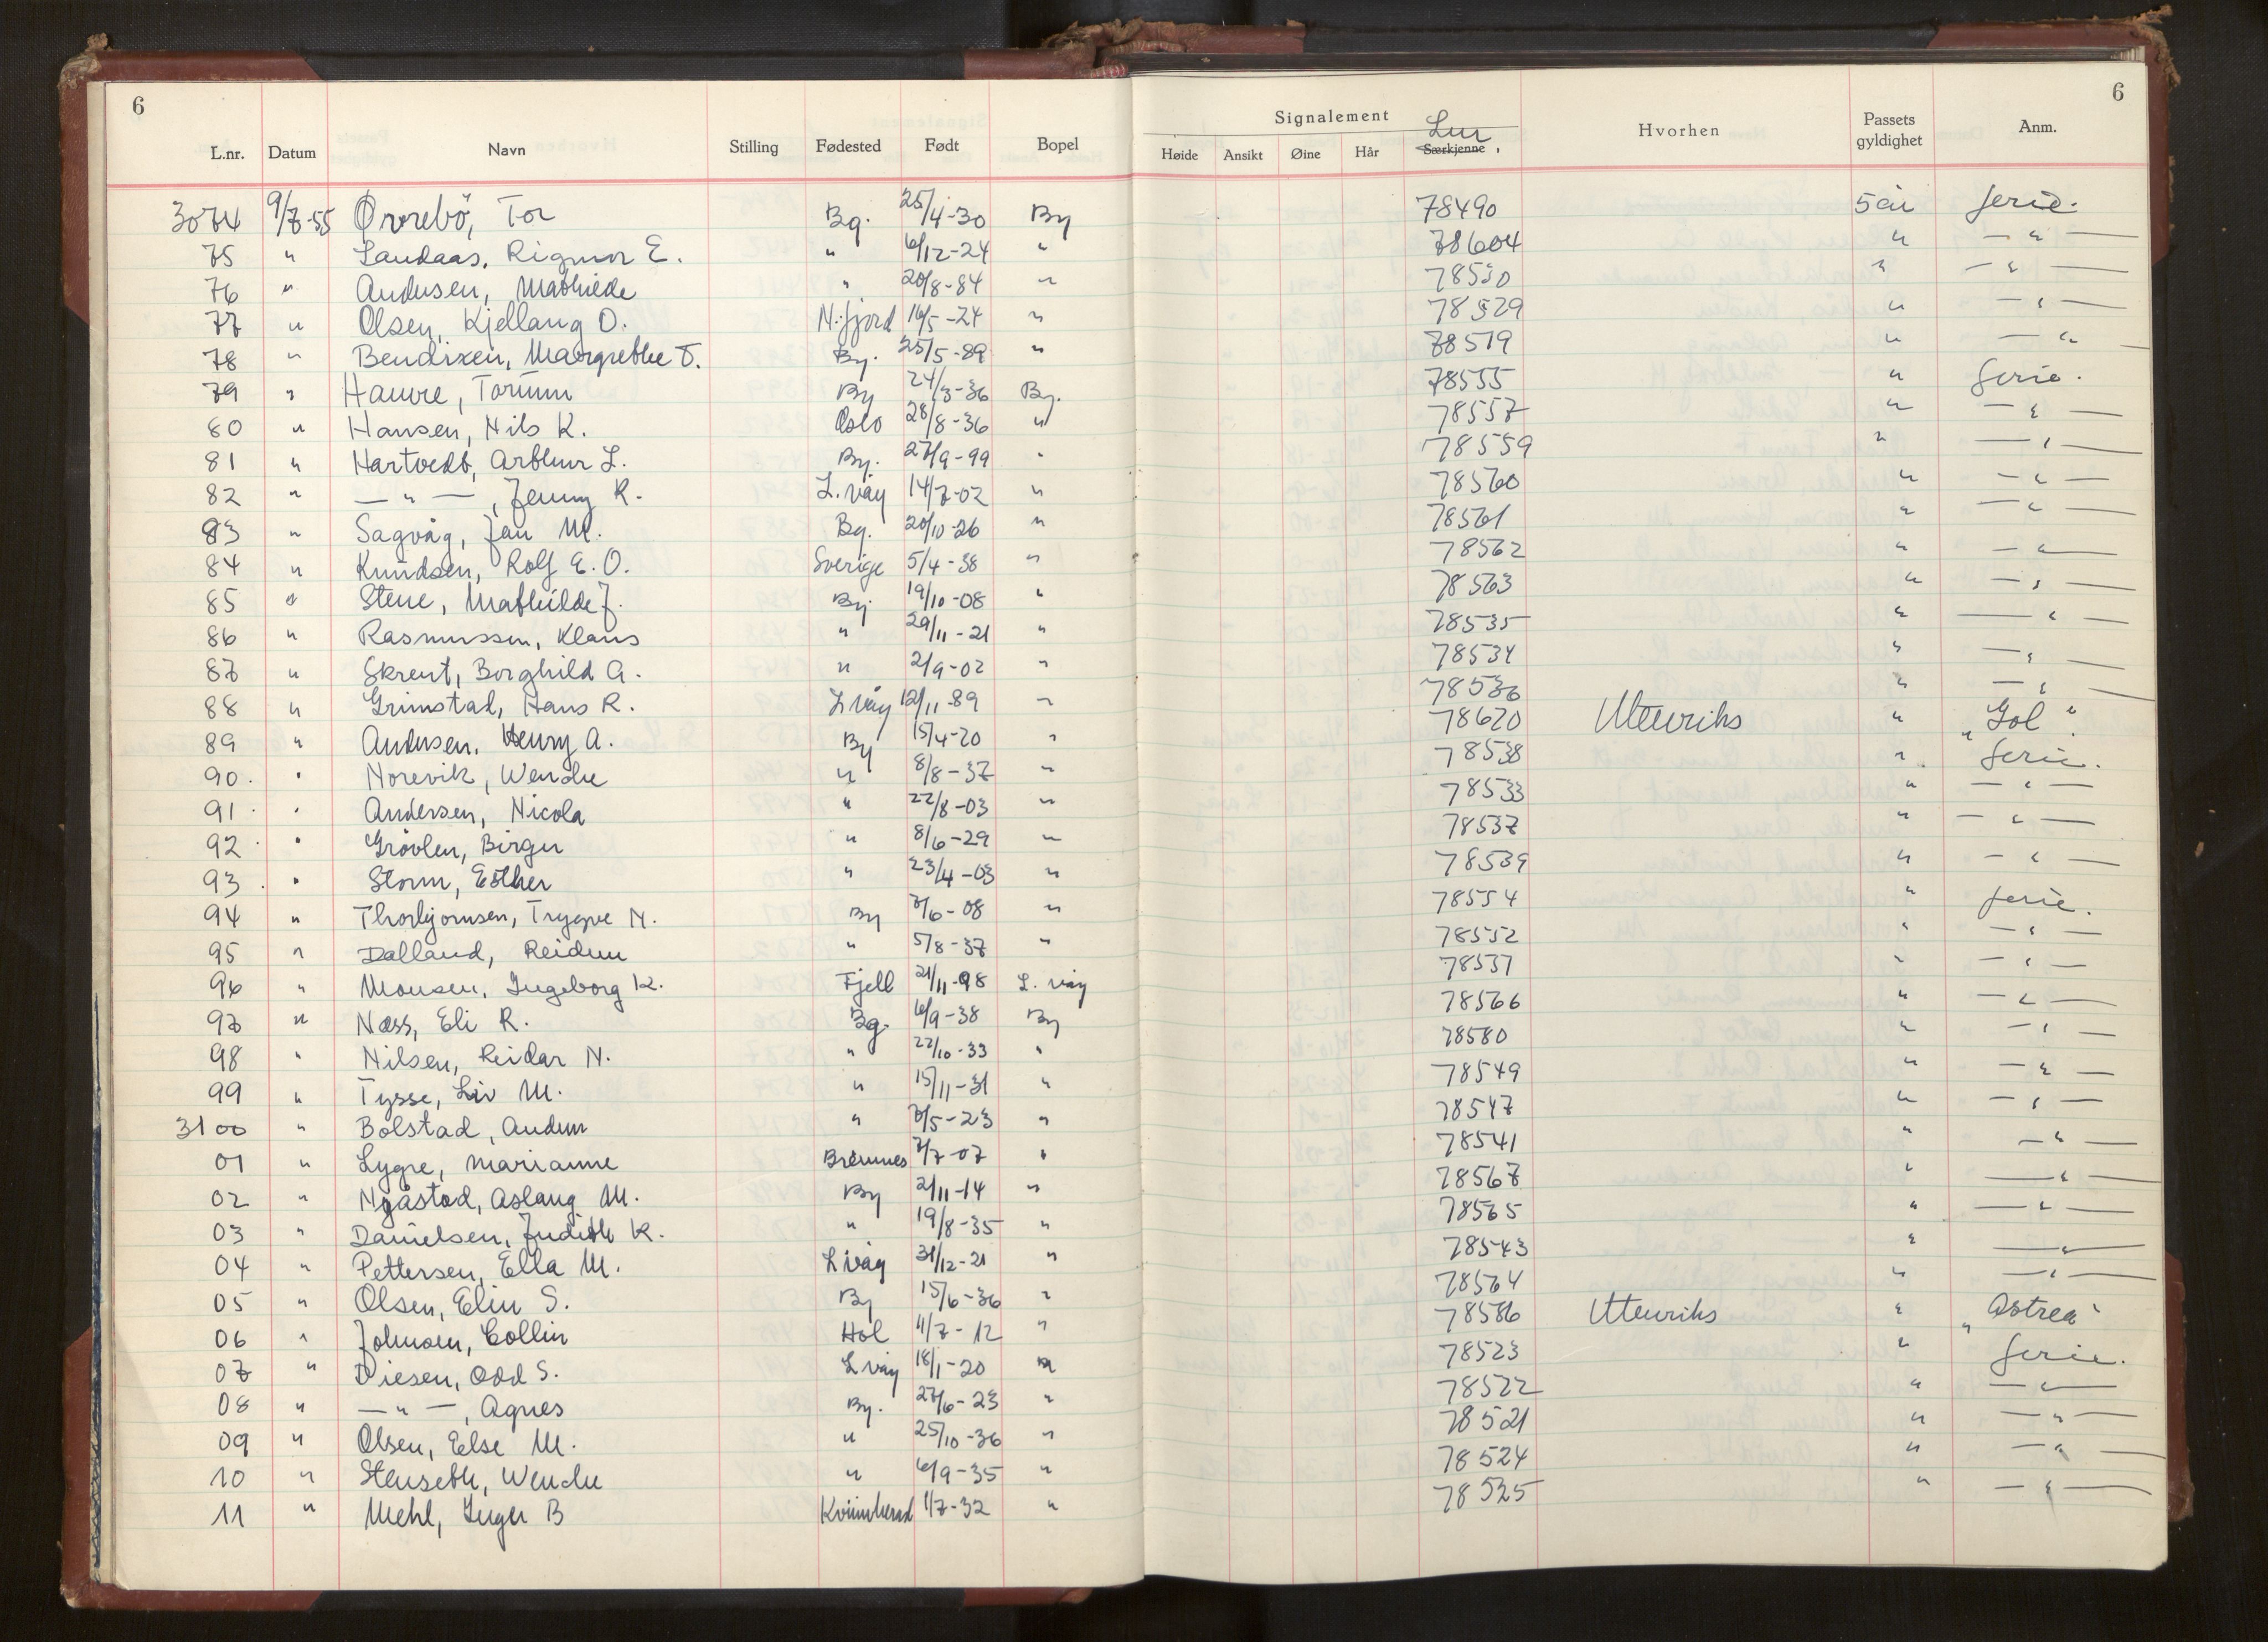 6 6
Signalement Lnr
L.nr. Datum Navn Stilling Fødested Født Bopel Høide Ansikt Øine Hår Særkjenne Hvorhen Passets gyldighet Anm.
3074 9/7-55 Øvrebö, Tor Bg. 25/4-30 By 78490 5 år ferie.
75 " Landaas, Rigmor E. " 6/12-24 " 78604 " — " —
76 " Andersen, Mathilde " 20/8-84 " 78530 " — " —
77 " Olsen, Kjellaug O. N.fjord 16/5-24 " 78529 " — " —
78 " Bendixen, Margrethe F. By. 25/5-89 " 78519 " — " —
79 " Hauvre, Torunn By 24/3-36 By. 78555 " ferie.
80 " Hansen, Nils K. Oslo 28/8-36 " 78557 " — " —
81 " Hartvedt, Arthur L. By. 27/9-99 " 78559 " — " —
82 " — " —, Jenny R. L.våg 14/7-02 " 78560 " — " —
83 " Sagvåg, Jan M. Bg. 20/10-26 " 78561 " — " —
84 " Knudsen, Rolf E. O. Sverige 5/4-38 " 78562 " — " —
85 " Stene, Mathilde J. By. 19/10-08 " 78563 " — " —
86 " Rasmussen, Klaus " 29/11-21 " 78535 " — " —
87 " Skrent, Borghild A. " 2/9-02 " 78534 " — " —
88 " Grimstad, Hans R. L våg 12/11-89 " 78536 " — " —
89 " Andersen, Henry A. By 15/4-20 " 78620 Utenriks " "Gol"
90. " Norevik, Wenche " 8/8-37 " 78538 " ferie.
91. " Andersen, Nicola " 22/8-03 " 78533 " — " —
92. " Grövlen, Birger " 8/6-29 " 78537 " — " —
93. " Storm, Esther " 23/4-03 " 78539 " — " —
94 " Thorbjørnsen, Trygve N. By 7/6-08 " 78554 " ferie.
95 " Dalland, Reidun " 5/8-37 " 78552 " — " —
96 " Monsen, Ingeborg K. Fjell 21/11-98 L. våg 78537 " — " —
97 " Næss, Eli R. Bg. 6/9-38 By 78566 " — " —
98 " Nilsen, Reidar N. " 22/10-33 " 78580 " — " —
99 " Tysse, Liv M. " 15/11-31 " 78549 " — " —
3100 " Bolstad, Audun " 8/5-23 " 78547 " — " —
01 " Lygre, Marianne Bremnes 7/7-07 " 78541 " — " —
02 " Nygåstad, Aslaug M. By 2/11-14 " 78567 " — " —
03 " Danielsen, Judith K. " 19/8-35 " 78565 " — " —
04 " Pettersen, Ella M. L våg 31/12-21 " 78543 " — " —
05 " Olsen, Elin S. By 15/6-36 " 78564 " — " —
06 " Johnsen, Collin Hol 4/7-12 " 78586 Utenriks " "Astrea"
07 " Diesen, Odd S. L våg 18/1-20 " 78523 " ferie.
08 " — " —, Agnes By. 27/6-23 " 78522 " — " —
09 " Olsen, Else M. " 25/10-36 " 78521 " — " —
10 " Stenseth, Wenche " 6/9-35 " 78524 " — " —
11 " Mehl, Inger B Kvinnherad 1/7-32 " 78525 " — " —